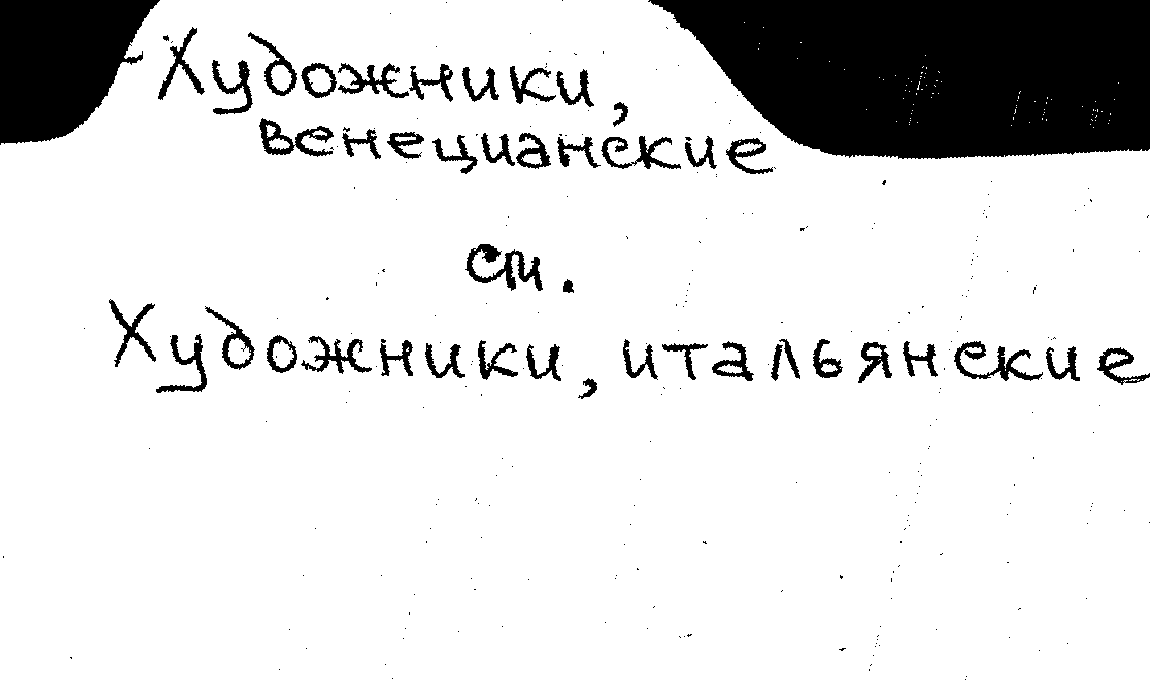 Художники,
венецианские
см.
Художники, итальянские